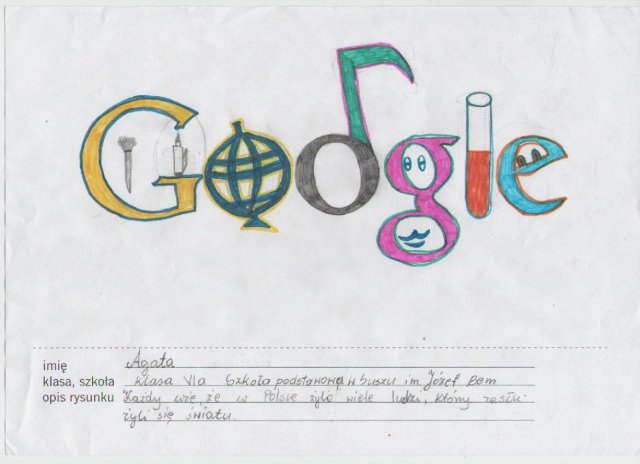 Google
imię Agata
klasa, szkoła klasa VIa Szkoła podstawowa w Suszu im. Józef Bem
opis rysunku Każdy wie, że w Polsce żyło wiele ludzi, który zasłu-
żyli się światu.